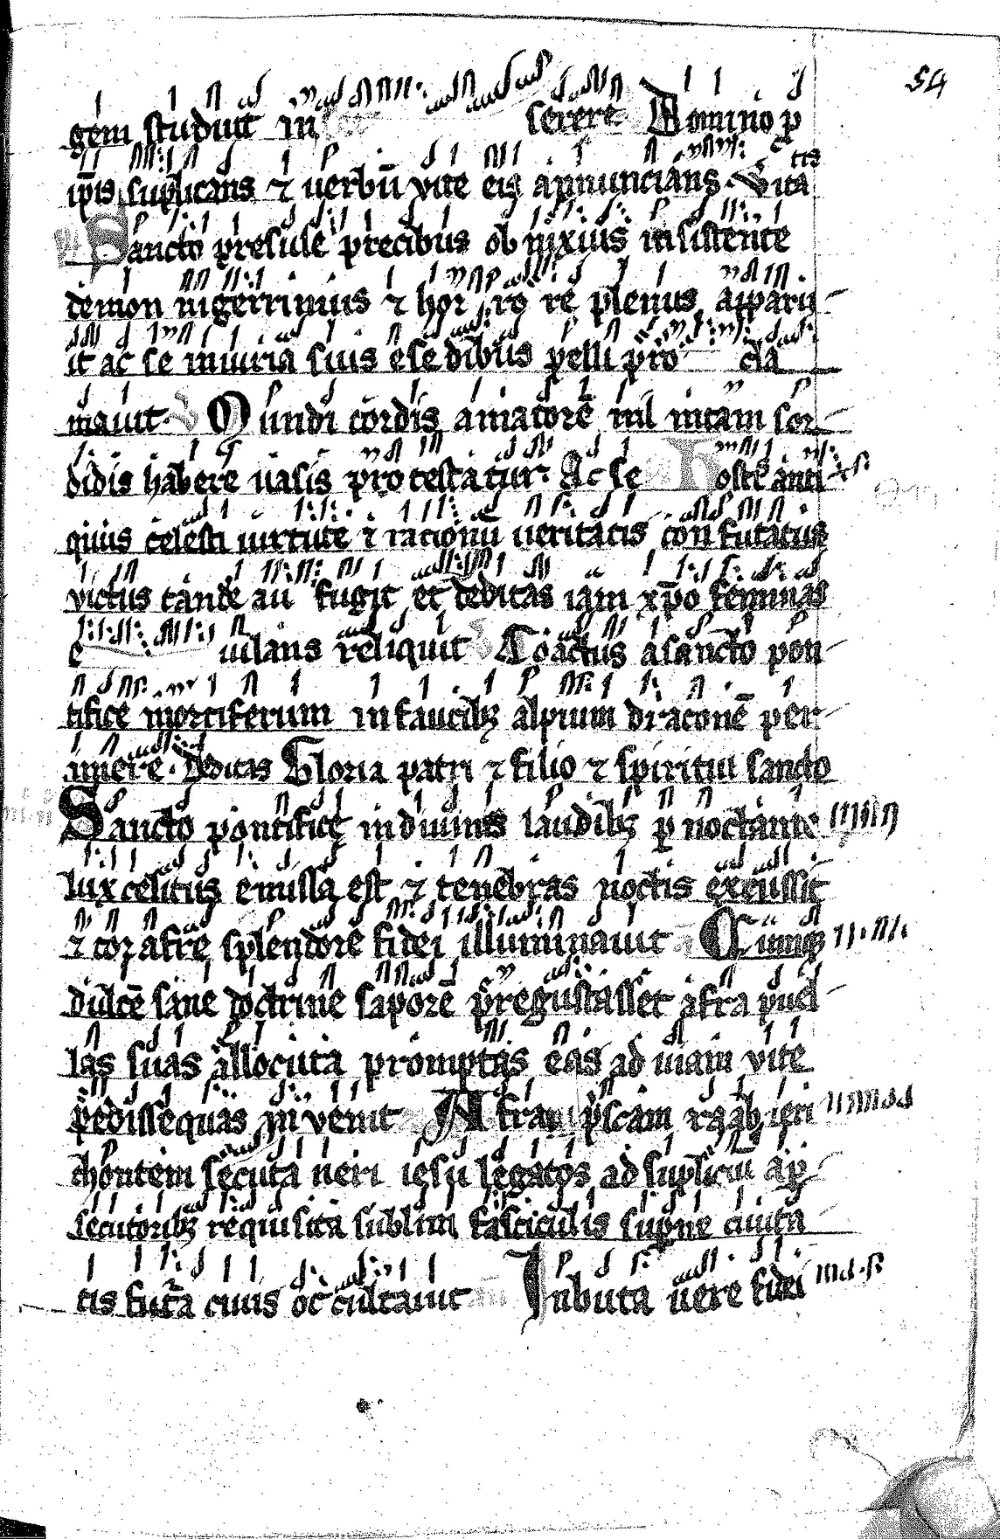 54
gem studuit in serere. Domino p
ipis suplicans ⁊ uerbū vite eis annuncians. Vita
tis
Sancto presule precibus ob nixius insistente
demon nigerrimus ⁊ hor ro re plenus apparu
it ac se iniuria suis e se dibus pelli pro cla
mauit. V Mundi cordis amatorē nil incam sor
didis habere uasis protestatur. Ac se Hostis anti
quus celesti uirtute ⁊ racionū ueritatis confutatus
victus tande au fugit et debitas iam xpo feminas
e iulans reliquit V Coactus a sancto pon
tifice mortiferum in faucibꝫ alpium draconē per
imere. Debitas Gloria patri ⁊ filio ⁊ spiritui sancto
Sancto pontifice in diuinis laudibꝫ p noctante
lux celitus emissa est ⁊ tenebras noctis excussit
⁊ cor afre splendore fidei illuminauit Cumqꝫ
dulcē sane doctrine saporē pregustasset afra puel
las suas allocuta promptas eas ad uiam vite
pedissequas inuenit Afra priscam raab ieri
chontem secuta ueri iesu legatos ad supliciū a p
secutoribꝫ requisita sublini fasciculis supne ciuita
tis futura ciuis occultauit Inbuta uere fidei